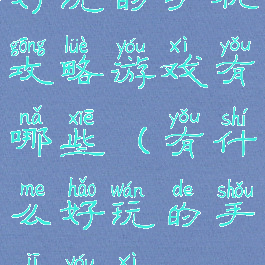 gōng lüè yóu xì yǒu
攻略游戏有
nǎ xiē yǒu shí
哪些（有什
me hǎo wán de shǒu
么好玩的手
jī yóu xì